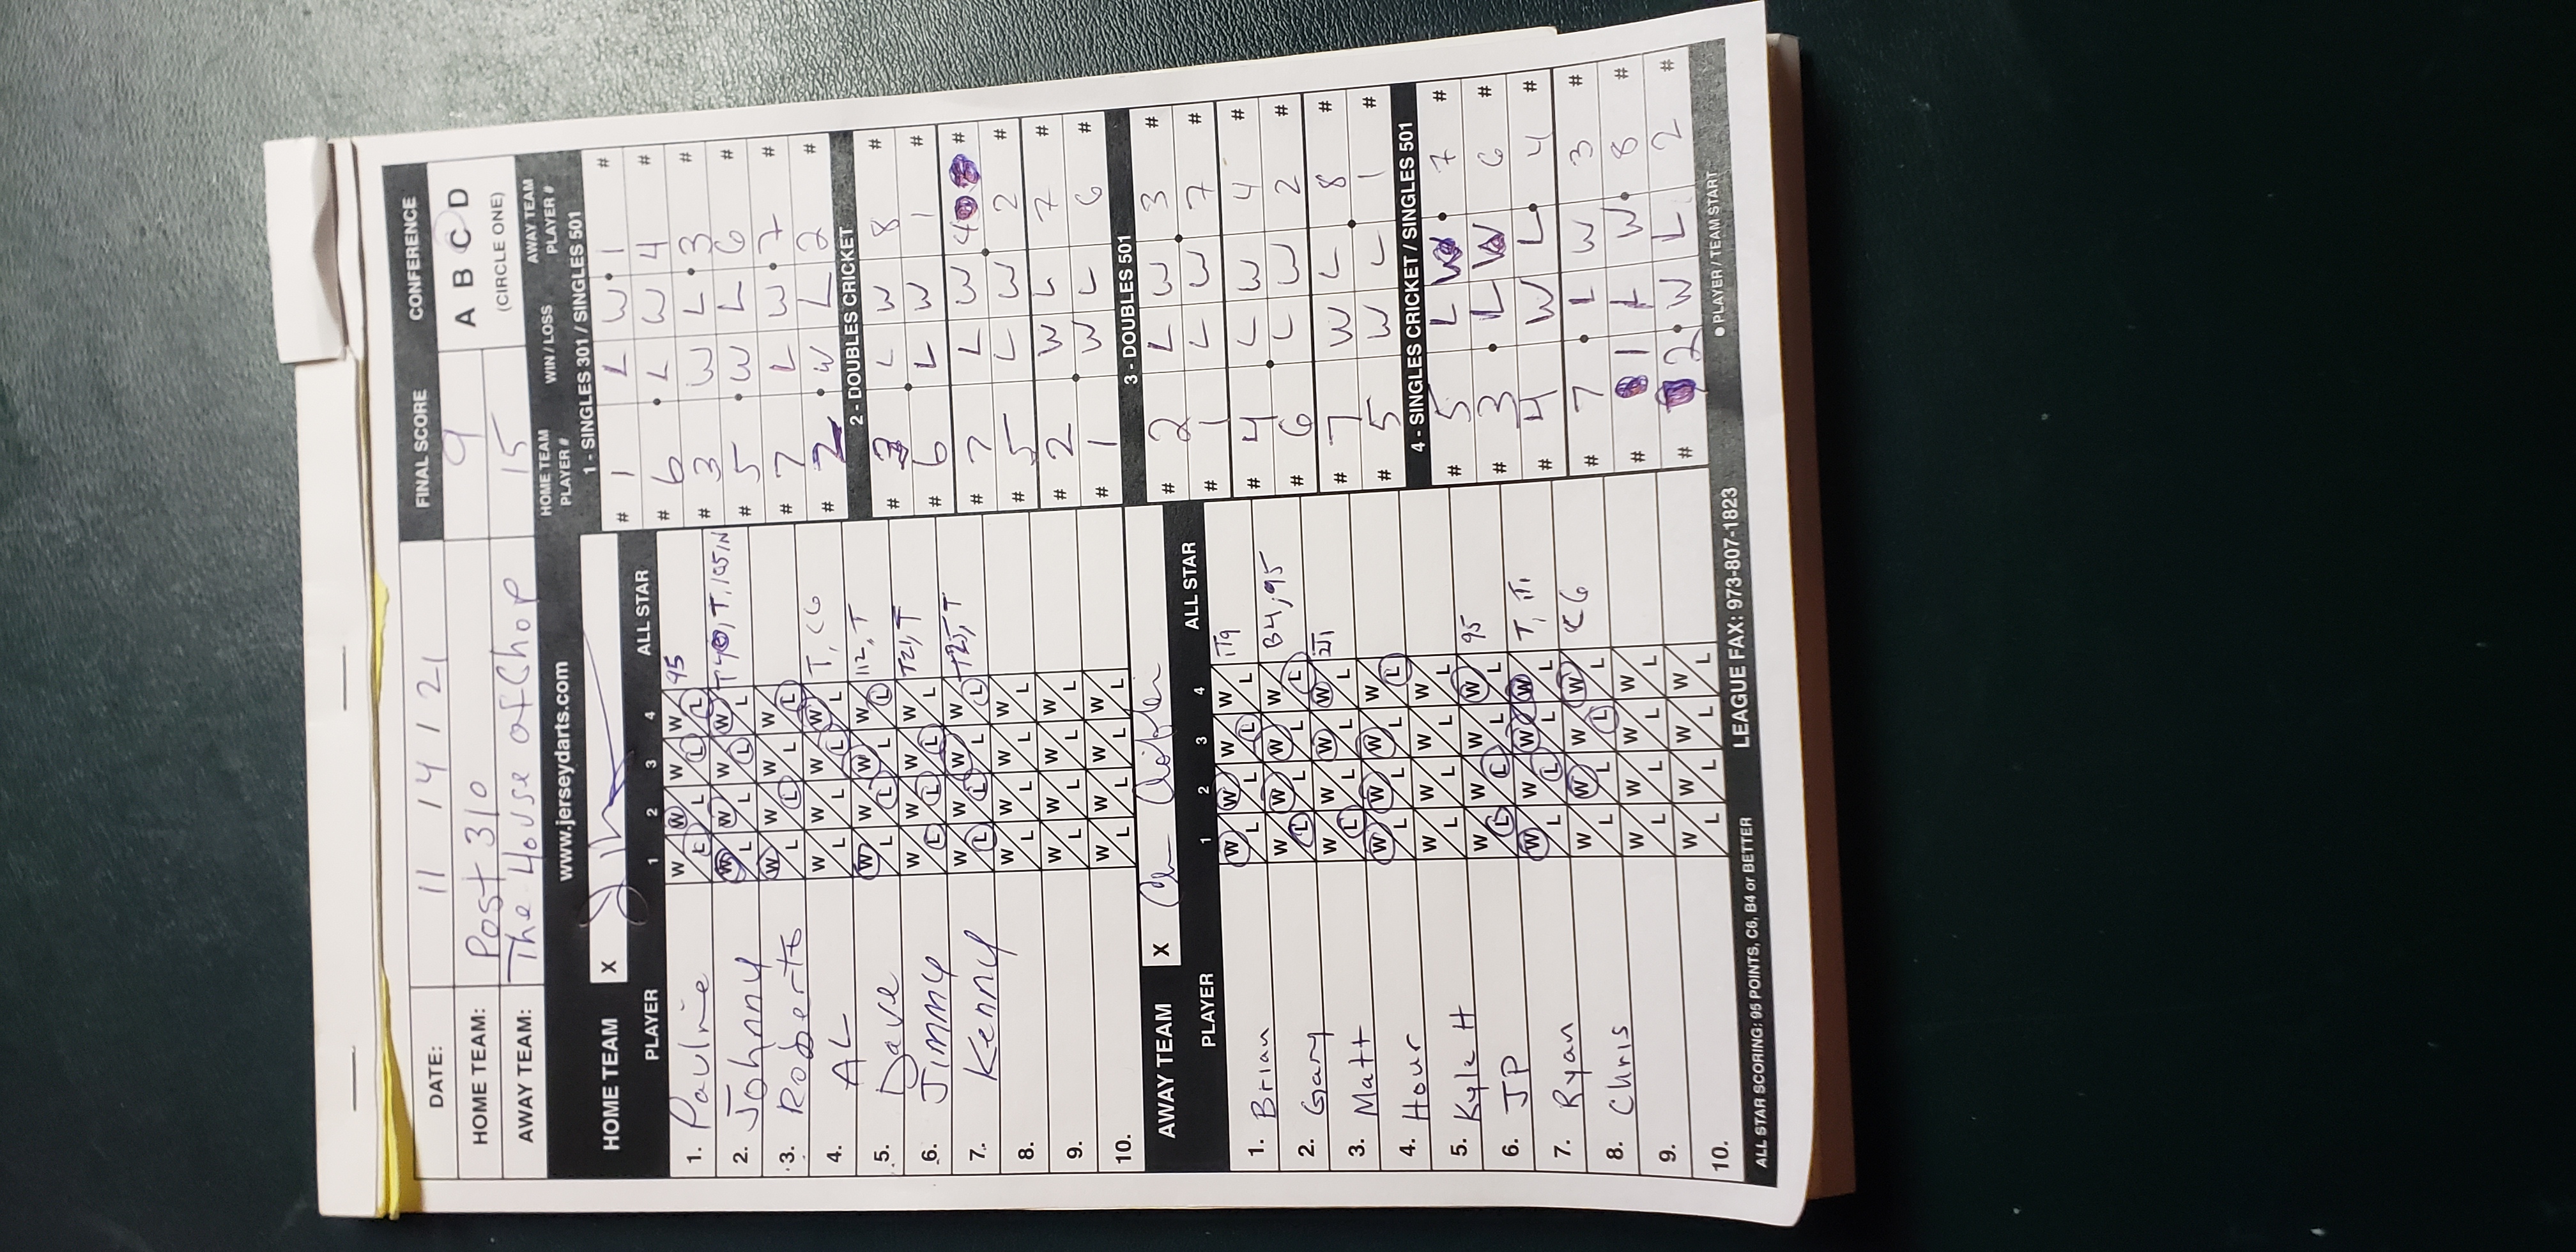 DATE: 11 14 21 FINAL SCORE CONFERENCE
HOME TEAM: Post 310 9 A B C D
AWAY TEAM: The House of Chop 15 (CIRCLE ONE)
www.jerseydarts.com
HOME TEAM X
PLAYER 1 2 3 4 ALL STAR
1. Pauline W/L W/L W/L W/L 95
2. Johnny W/L W/L W/L W/L
3. Roberto W/L W/L W/L W/L
4. AL W/L W/L W/L W/L T, C6
5. Dave W/L W/L W/L W/L 112, T
6. Jimmy W/L W/L W/L W/L T21, T
7. Kenny W/L W/L W/L W/L T25, T
8. W/L W/L W/L W/L
9. W/L W/L W/L W/L
10. W/L W/L W/L W/L
AWAY TEAM X
PLAYER 1 2 3 4 ALL STAR
1. Brian W/L W/L W/L W/L
2. Gary W/L W/L W/L W/L B4, 95
3. Matt W/L W/L W/L W/L
4. Hour W/L W/L W/L W/L
5. Kyle H W/L W/L W/L W/L
6. JP W/L W/L W/L W/L 95
7. Ryan W/L W/L W/L W/L
8. Chris W/L W/L W/L W/L C6
9. W/L W/L W/L W/L
10. W/L W/L W/L W/L
ALL STAR SCORING: 95 POINTS, C6, B4 or BETTER LEAGUE FAX: 973-807-1823
HOME TEAM PLAYER # WIN / LOSS AWAY TEAM PLAYER #
1 - SINGLES 301 / SINGLES 501
# 1 L W 1 #
# 6 L W 4 #
# 3 W L 3 #
# 5 W L 6 #
# 7 L W 7 #
# 2 W L 2 #
2 - DOUBLES CRICKET
# 3 L W 8 #
# 6 L W 1 #
# 7 L W 4 #
# 5 L W 2 #
# 2 W L 7 #
# 1 W L 6 #
3 - DOUBLES 501
# 2 L W 3 #
# 1 L W 7 #
# 4 L W 4 #
# 6 L W 2 #
# 7 W L 8 #
# 5 W L 1 #
4 - SINGLES CRICKET / SINGLES 501
# 5 L W 7 #
# 3 L W 6 #
# 4 W L 4 #
# 7 L W 3 #
# 1 L W 8 #
# 2 W L 2 #
PLAYER / TEAM START